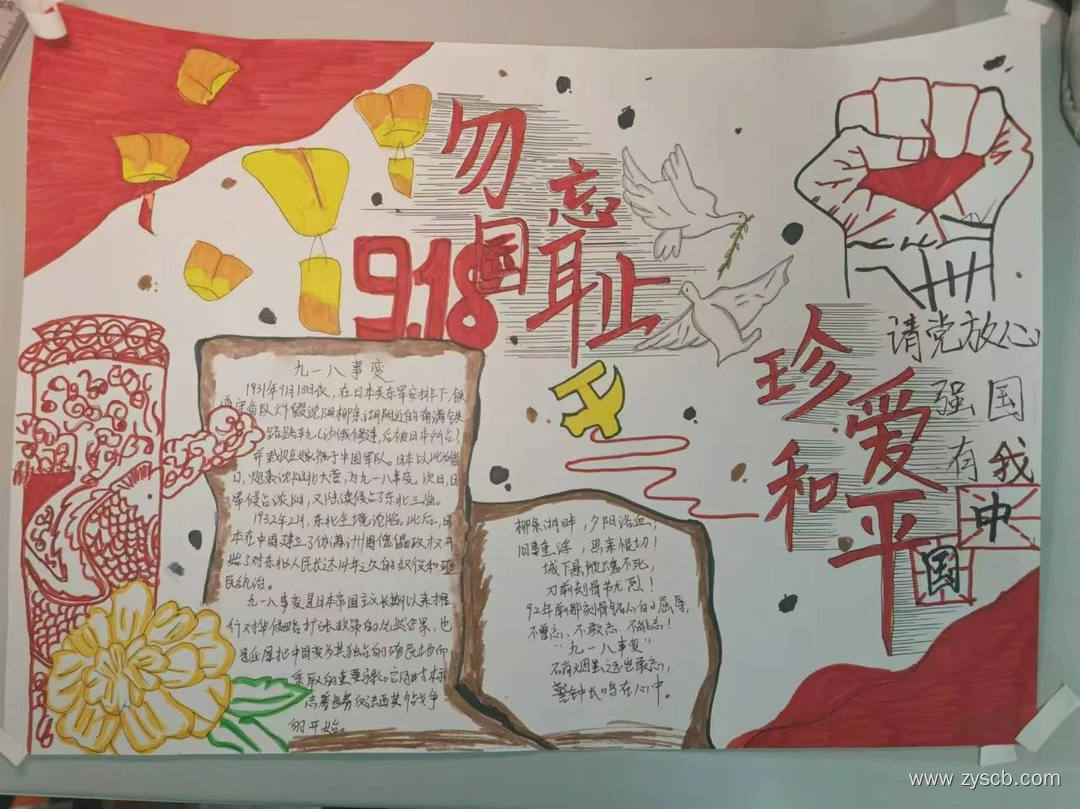 勿忘
国耻
9.18
珍爱
和平
请党放心
强国
有我
中
国
九一八事变
1931年9月18日夜，在日本关东军安排下，铁
道守备队炸毁沈阳柳条湖附近的南满铁
路路轨（沙俄修建，后被日本所占）
并栽赃嫁祸于中国军队。日本以此为借
口，炮轰沈阳北大营，为九一八事变。次日，日
军侵占沈阳，又陆续侵占了东北三省。
1932年2月，东北全境沦陷。此后，日
本在中国建立了伪满洲国傀儡政权开
始了对东北人民长达14年之久的奴役和殖
民统治。
九一八事变是日本帝国主义长期以来推
行对华侵略扩张政策的必然结果，也
是企图把中国变为其独占的殖民地而
采取的重要步骤。它同时标
志着世界反法西斯战争
的开始。
柳条湖畔，夕阳浴血，
旧事重浮，思来恨切！
城下悬颅魂不死，
刀前刻骨节尤烈！
92年前那刻骨铭心的屈辱，
不曾忘、不敢忘、不能忘！
“九一八事变”
硝烟虽远岂敢忘，
警钟长鸣在心中。
www.zyscb.com